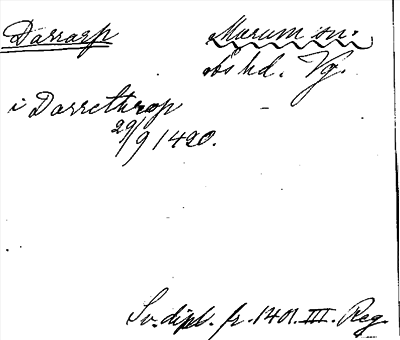 Darrarp Marum sn.
Ås hd. Vg.
i Darrethrop
29/9 1420.
Sv. dipl. fr. 1401. III. Reg.